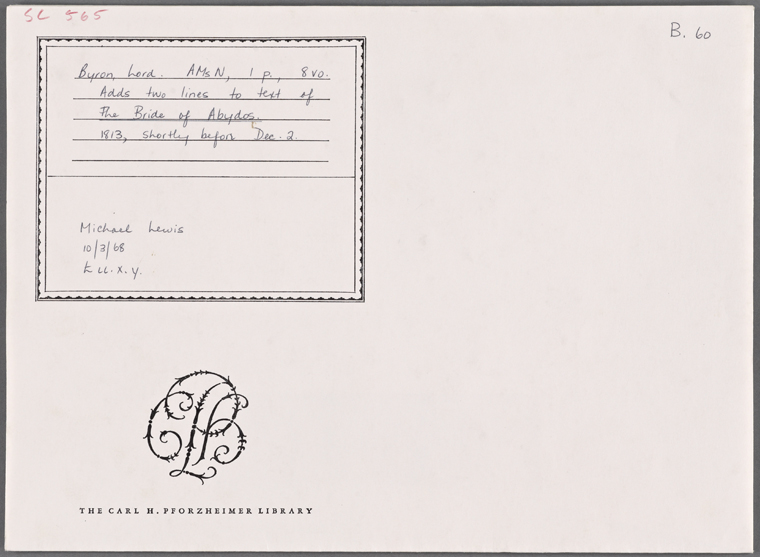 SC 565
B. 60
Byron, Lord. AMsN, 1 p., 8vo.
Adds two lines to text of
The Bride of Abydos.
1813, shortly before Dec. 2.
Michael Lewis
10/3/68
£ cc.x.y.
THE CARL H. PFORZHEIMER LIBRARY